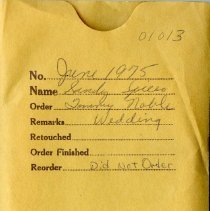 01013
No. June 1975
Name Sandy
Order Timothy Noble
Remarks Wedding
Retouched
Order Finished
Reorder Did Not Order